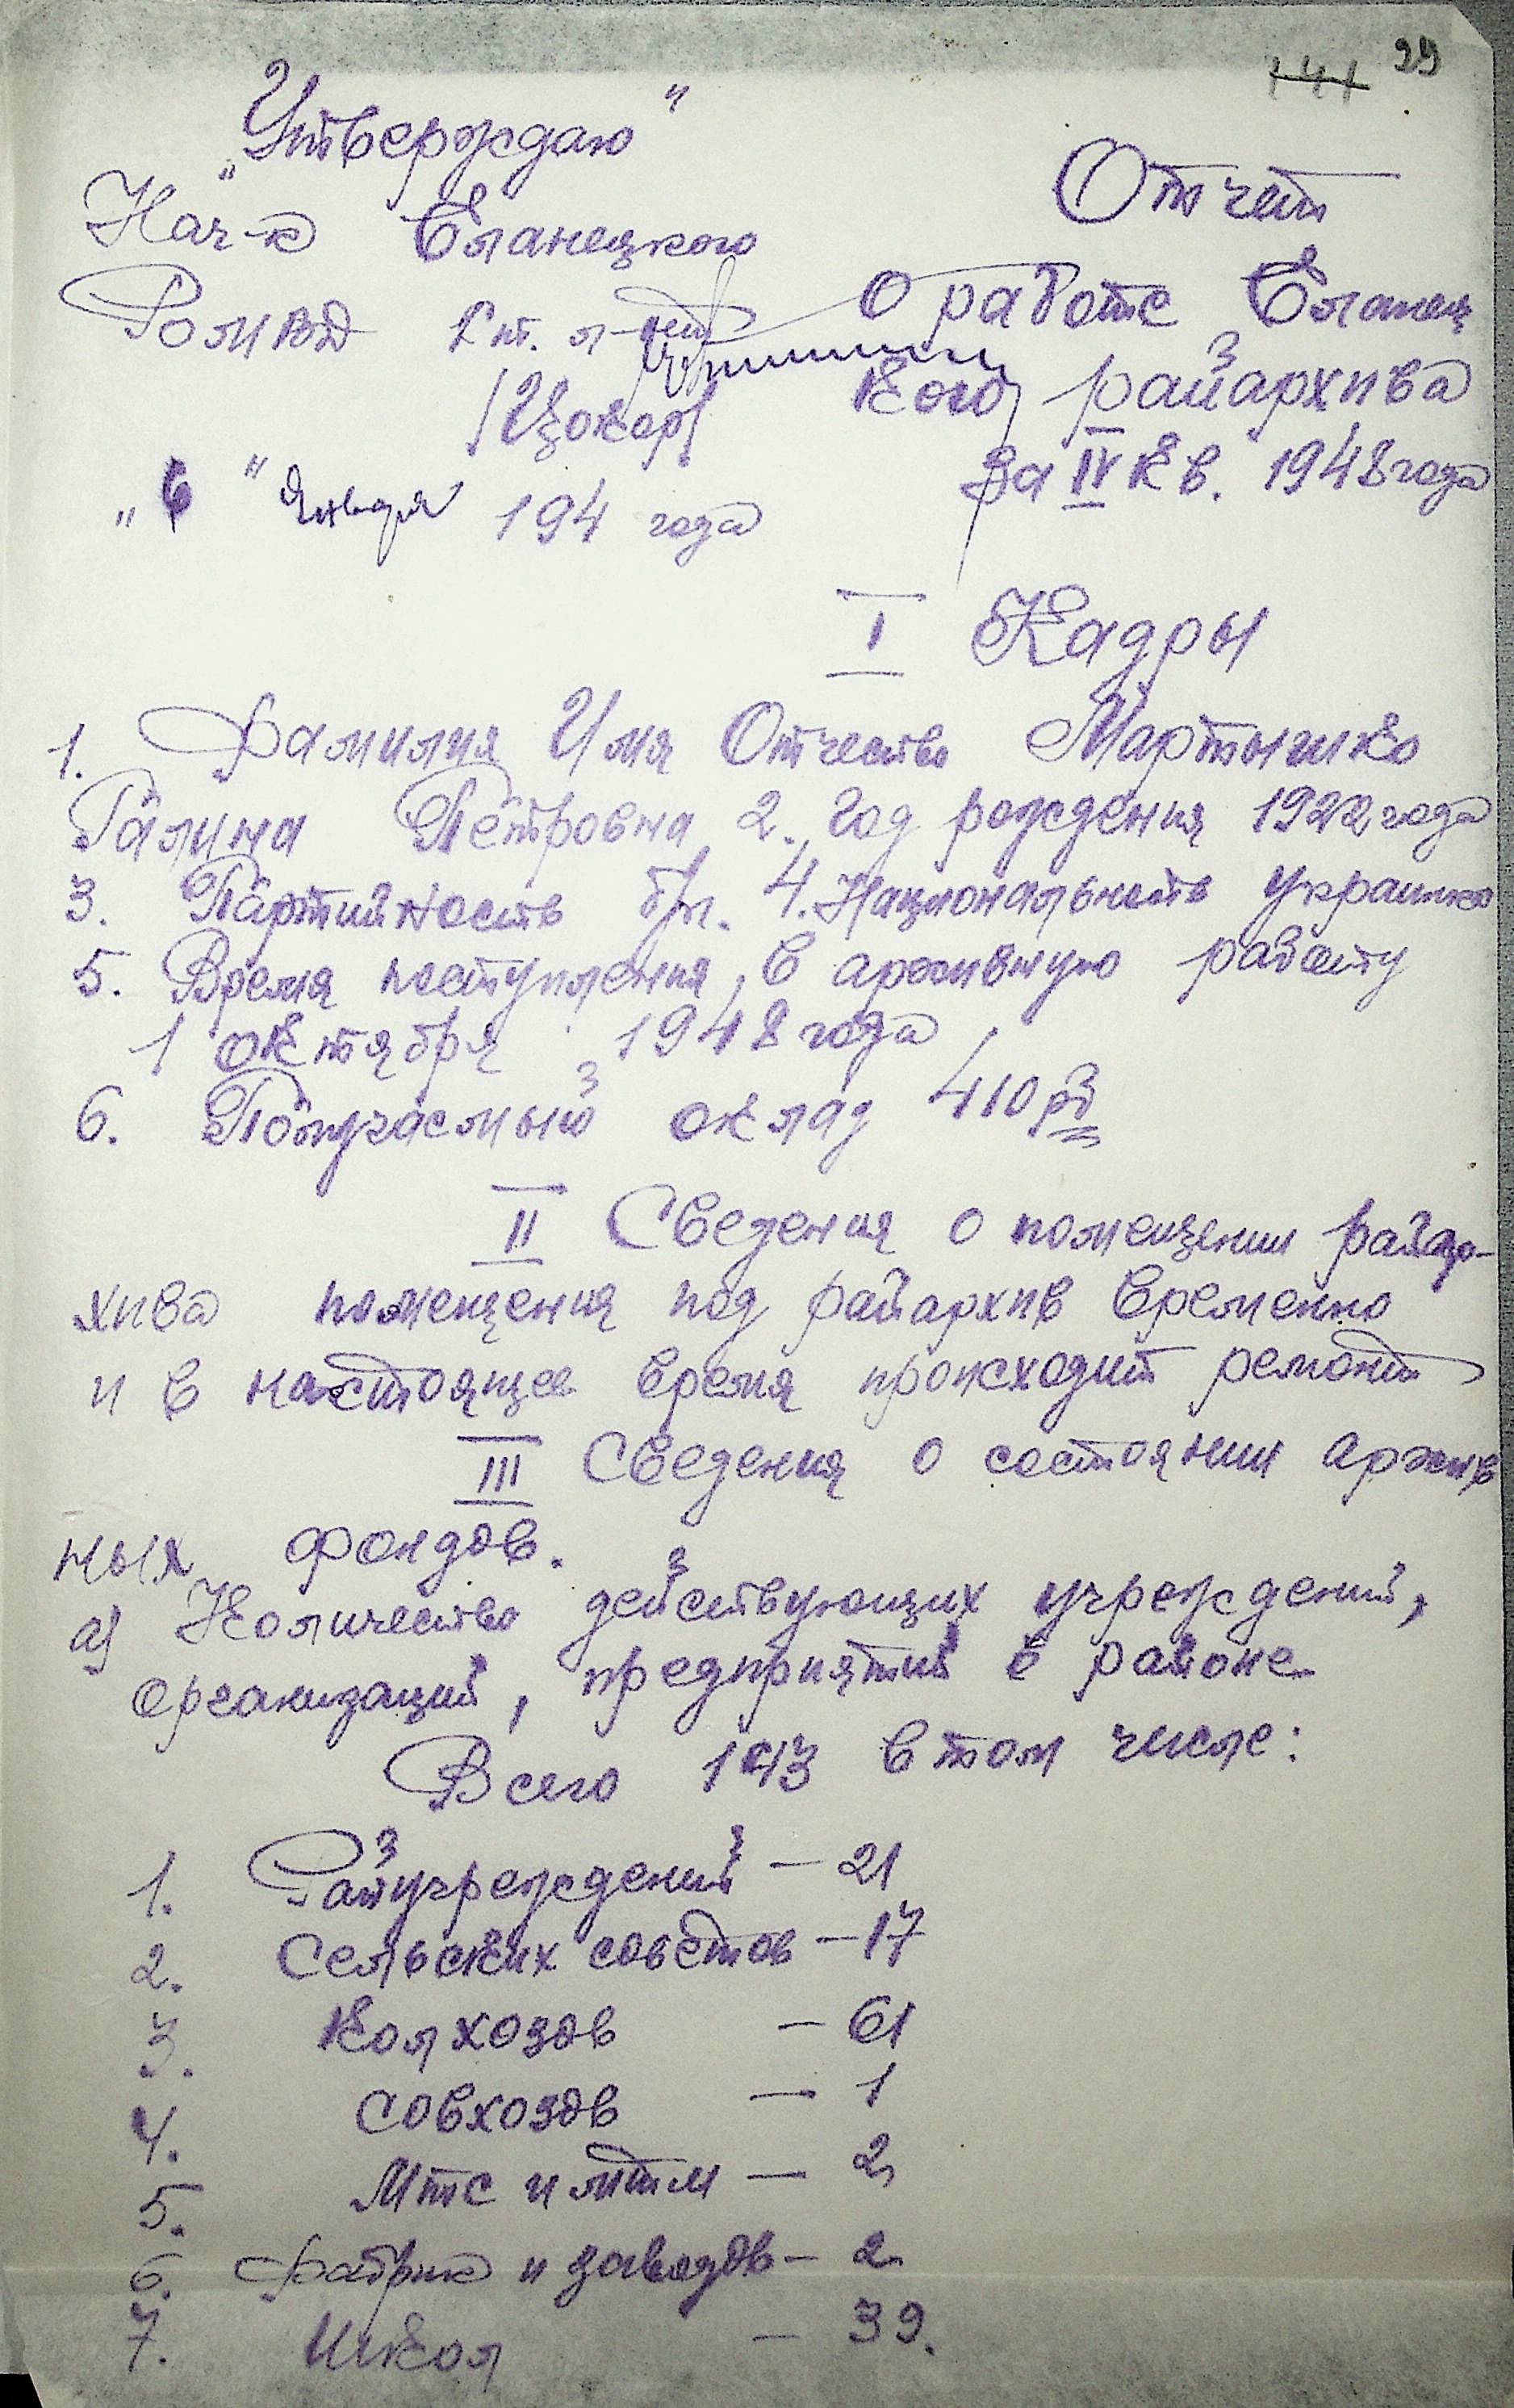 141 29
"Утверждаю"
Нач-к Еланецкого
РОМВД Ст. л-нт
/Цокор/
"6" Января 194 года
Отчет
о работе Еланец
кого райархива
за IV кв. 1948 года
I Кадры
1. Фамилия Имя Отчество Мартышко
Галина Петровна 2. Год рождения 1922 года
3. Партийность б/п. 4. Национальность украинка
5. Время поступления в архивную работу
1 октября 1948 года
6. Получаемый оклад 410 р
II Сведения о помещении райар-
хива помещения под райархив временно
и в настоящее время происходит ремонт
III Сведения о состоянии архив
ных фондов.
а) Количество действующих учреждений,
организаций, предприятий в районе
Всего 143 в том числе:
1. Райучреждений – 21
2. Сельских советов – 17
3. Колхозов – 61
4. Совхозов – 1
5. Мтс и мтм – 2
6. Фабрик и заводов – 2
7. Школ – 39.